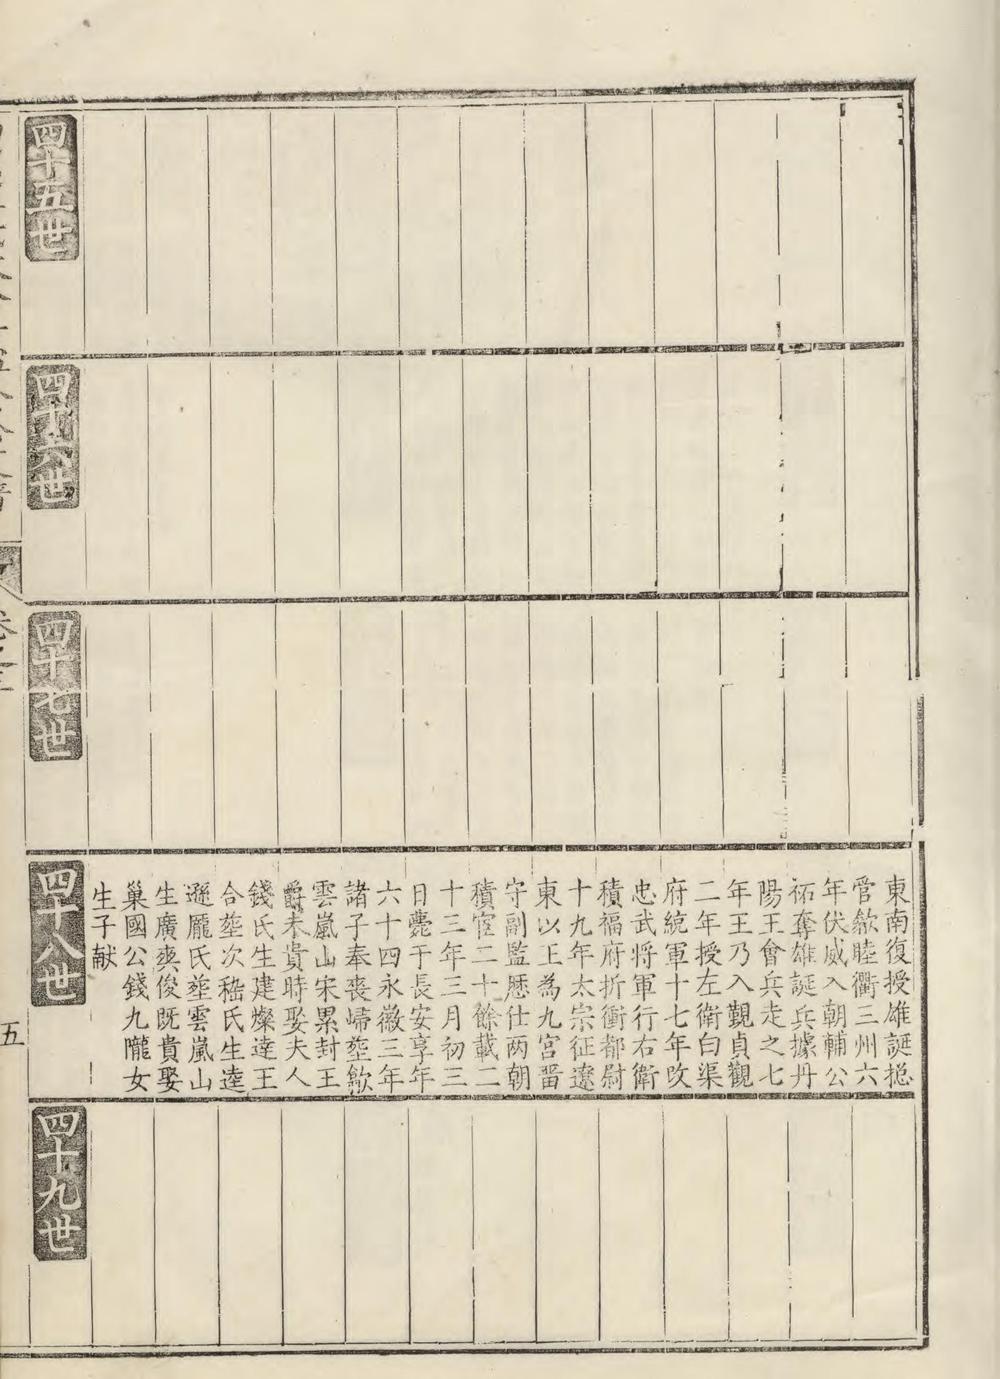 東南復授雄誕揔
管歙睦衢三州六
年伏威入朝輔公
祏奪雄誕兵據丹
陽王會兵走之七
年王乃入覲貞觀
二年授左衛白渠
府統軍十七年改
忠武将軍行右衛
積福府折衝都尉
十九年太宗征遼
東以王為九宫畱
守副監厯仕两朝
積官二十餘載二
十三年三月初三
日薨于長安享年
六十四永徽三年
諸子奉喪歸塟歙
雲嵐山宋累封王
爵未貴時娶夫人
錢氏生建燦達王
合塟次嵇氏生逵
遜龎氏塟雲嵐山
生廣爽俊既貴娶
巢國公錢九隴女
生子献
四十五世
四十六世
四十七世
四十八世
四十九世
卷之三
五